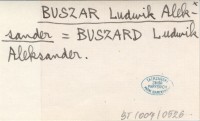 BUSZAR Ludwik Alek-
sander = BUSZARD Ludwik
Aleksander.